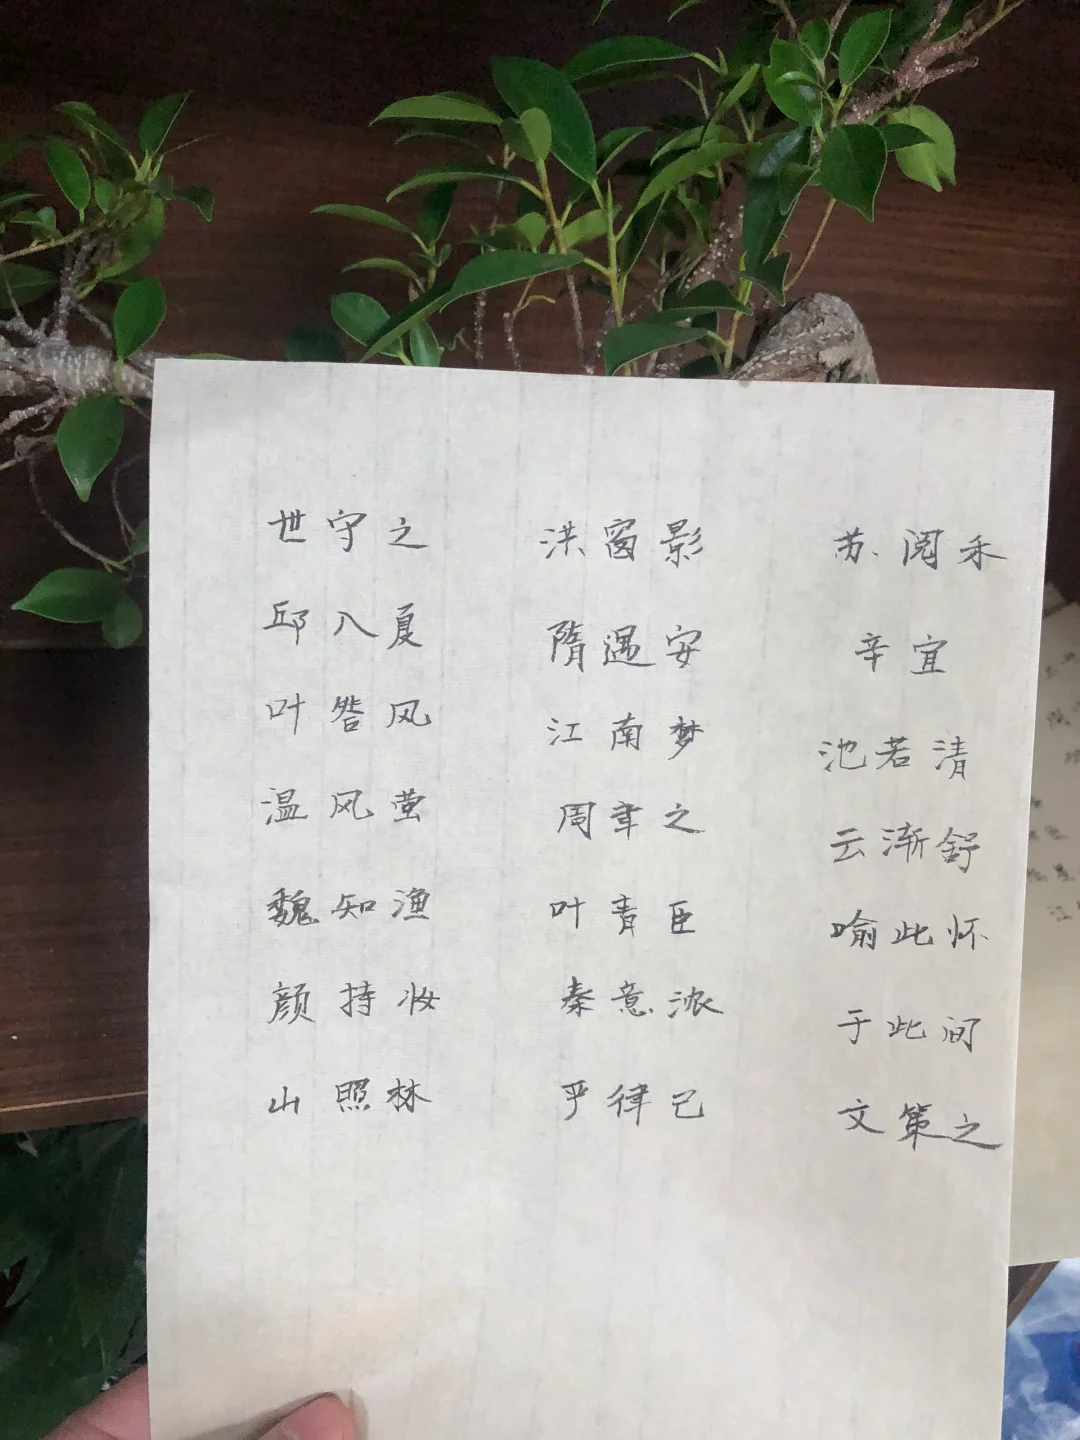 世守之
邱八夏
叶咎风
温风萤
魏知渔
颜持妆
山照林
洪窗影
隋遇安
江南梦
周聿之
叶青臣
秦意浓
严律己
苏阅禾
辛宜
池若清
云渐舒
喻此怀
于此间
文策之